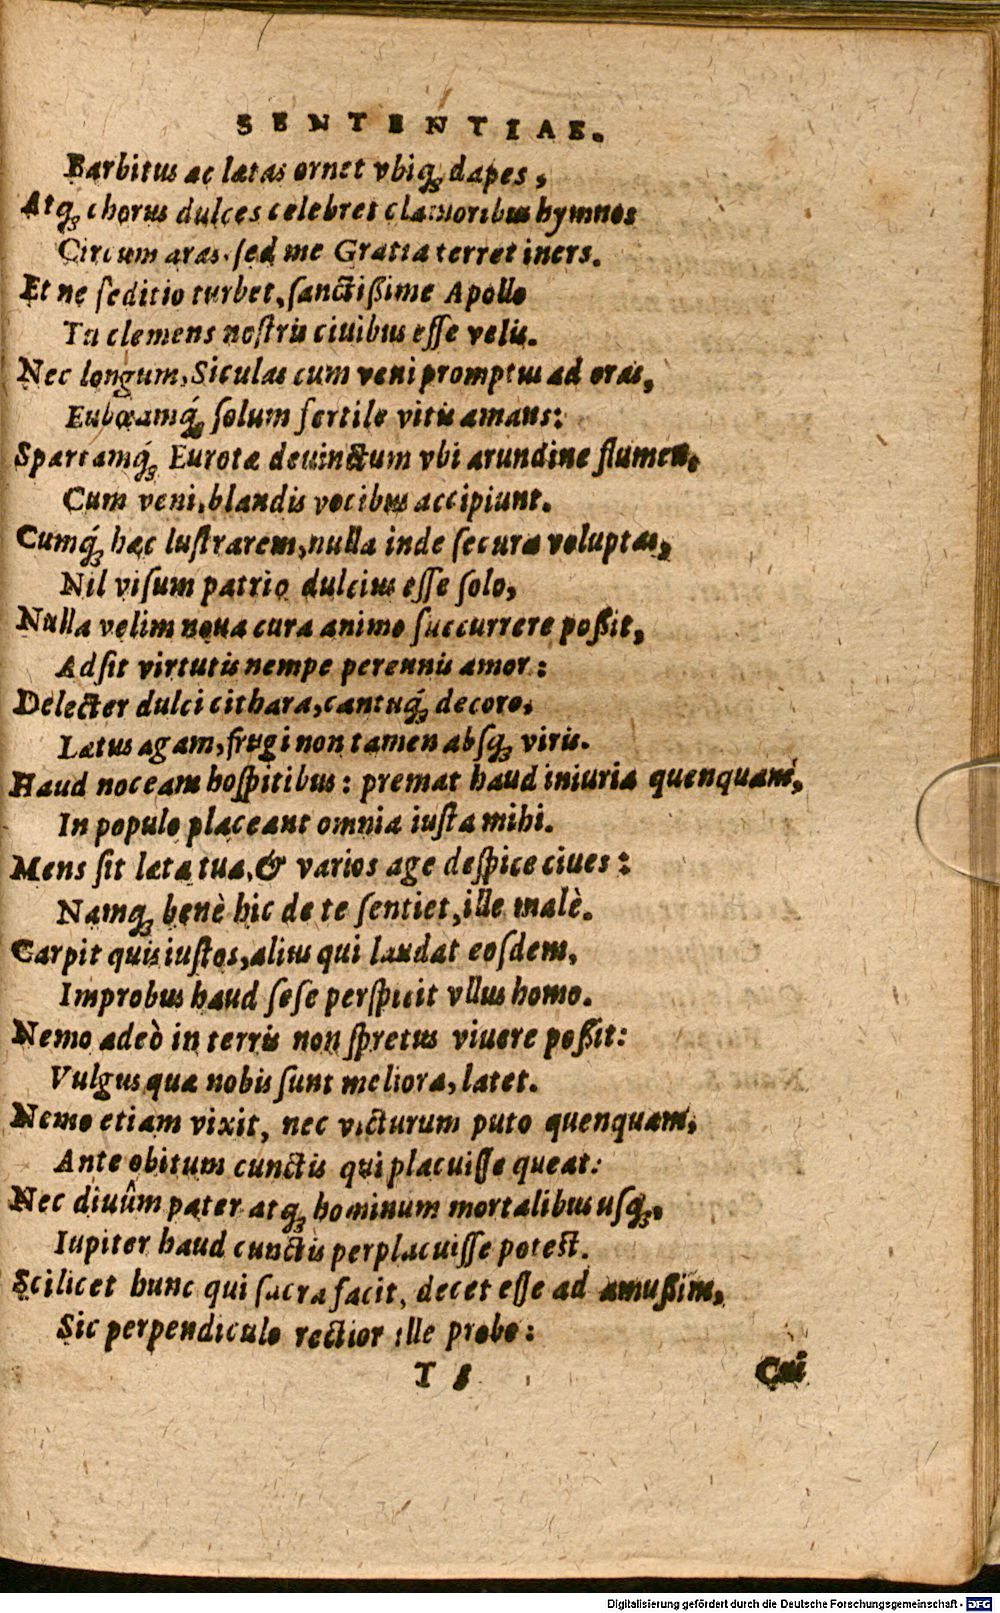 SENTENTIAE.
Barbitus ac lætas ornet vbiq́; dapes,
Atq́; chorus dulces celebret clamoribus hymnos
Circum aras. sed me Gratia terret iners.
Et ne seditio turbet, sanctißime Apollo
Tu clemens nostris ciuibus esse velis.
Nec longum, Siculas cum veni promptus ad oras,
Eubœamq́; solum fertile vitis amans:
Spartamq́; Eurotæ deuinctum vbi arundine flumen,
Cum veni, blandis vocibus accipiunt.
Cumq́; hæc lustrarem, nulla inde secura voluptas,
Nil visum patrio dulcius esse solo,
Nulla velim noua cura animo succurrere poßit,
Adsit virtutis nempe perennis amor:
Delecter dulci cithara, cantuq́; decoro,
Lætus agam, frugi non tamen absq́; viris.
Haud noceam hospitibus: premat haud iniuria quenquam,
In populo placeant omnia iusta mihi.
Mens sit læta tua, & varios age despice ciues:
Namq́; benè hic de te sentiet, ille malè.
Carpit quis iustos, alius qui laudat eosdem,
Improbus haud sese perspicit vllus homo.
Nemo adeò in terris non spretus viuere poßit:
Vulgus quæ nobis sunt meliora, latet.
Nemo etiam vixit, nec victurum puto quenquam,
Ante obitum cunctis qui placuisse queat:
Nec diuûm pater atq́; hominum mortalibus usq́;,
Iupiter haud cunctis perplacuisse potest.
Scilicet hunc qui sacra facit, decet esse ad amußim,
Sic perpendiculo rectior ille probo:
T 8
Cui
Digitalisierung gefördert durch die Deutsche Forschungsgemeinschaft - DFG